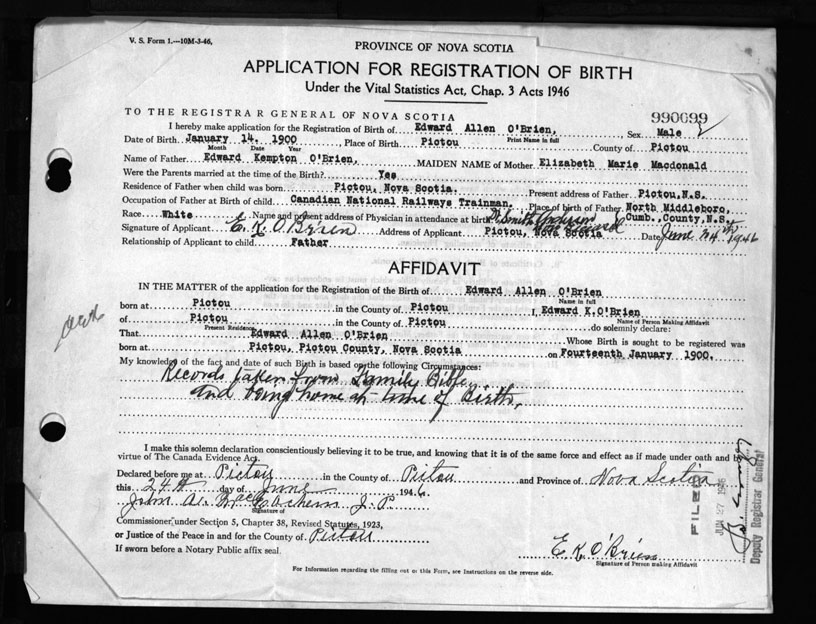 V. S. Form 1.—10M-3-46.
PROVINCE OF NOVA SCOTIA
APPLICATION FOR REGISTRATION OF BIRTH
Under the Vital Statistics Act, Chap. 3 Acts 1946
TO THE REGISTRAR GENERAL OF NOVA SCOTIA
990699
I hereby make application for the Registration of Birth of Edward Allen O'Brien, Sex Male
Print Name in full
Date of Birth January 14, 1900 Place of Birth Pictou County of Pictou
Month Date Year
Name of Father Edward Kempton O'Brien, MAIDEN NAME of Mother Elizabeth Marie Macdonald
Were the Parents married at the time of the Birth? Yes
Residence of Father when child was born Pictou, Nova Scotia. Present address of Father Pictou, N.S.
Occupation of Father at Birth of child Canadian National Railways Trainman. Place of birth of Father North Middleboro,
Cumb., County, N.S.
Race White Name and present address of Physician in attendance at birth Dr. Smith Anderson
Signature of Applicant E. K. O'Brien Address of Applicant Pictou, Nova Scotia Date June 24th 1946
Relationship of Applicant to child Father
AFFIDAVIT
IN THE MATTER of the application for the Registration of the Birth of Edward Allen O'Brien
Name in full
born at Pictou in the County of Pictou I, Edward K. O'Brien
Name of Person Making Affidavit
of Pictou in the County of Pictou do solemnly declare:
Present Residence
That Edward Allen O'Brien Whose Birth is sought to be registered was
born at Pictou, Pictou County, Nova Scotia on Fourteenth January 1900.
My knowledge of the fact and date of such Birth is based on the following Circumstances:
Records taken from Family Bible,
and being home at time of Birth.
I make this solemn declaration conscientiously believing it to be true, and knowing that it is of the same force and effect as if made under oath and by
virtue of The Canada Evidence Act.
Declared before me at Pictou in the County of Pictou and Province of Nova Scotia
this 24th day of June 1946
John W. MacEachern J. P.
Signature of
Commissioner under Section 5, Chapter 38, Revised Statutes, 1923,
or Justice of the Peace in and for the County of Pictou
If sworn before a Notary Public affix seal.
E K O'Brien
Signature of Person making Affidavit
For Information regarding the filling out of this Form, see Instructions on the reverse side.
FILED
JUN 27 1946
Deputy Registrar General